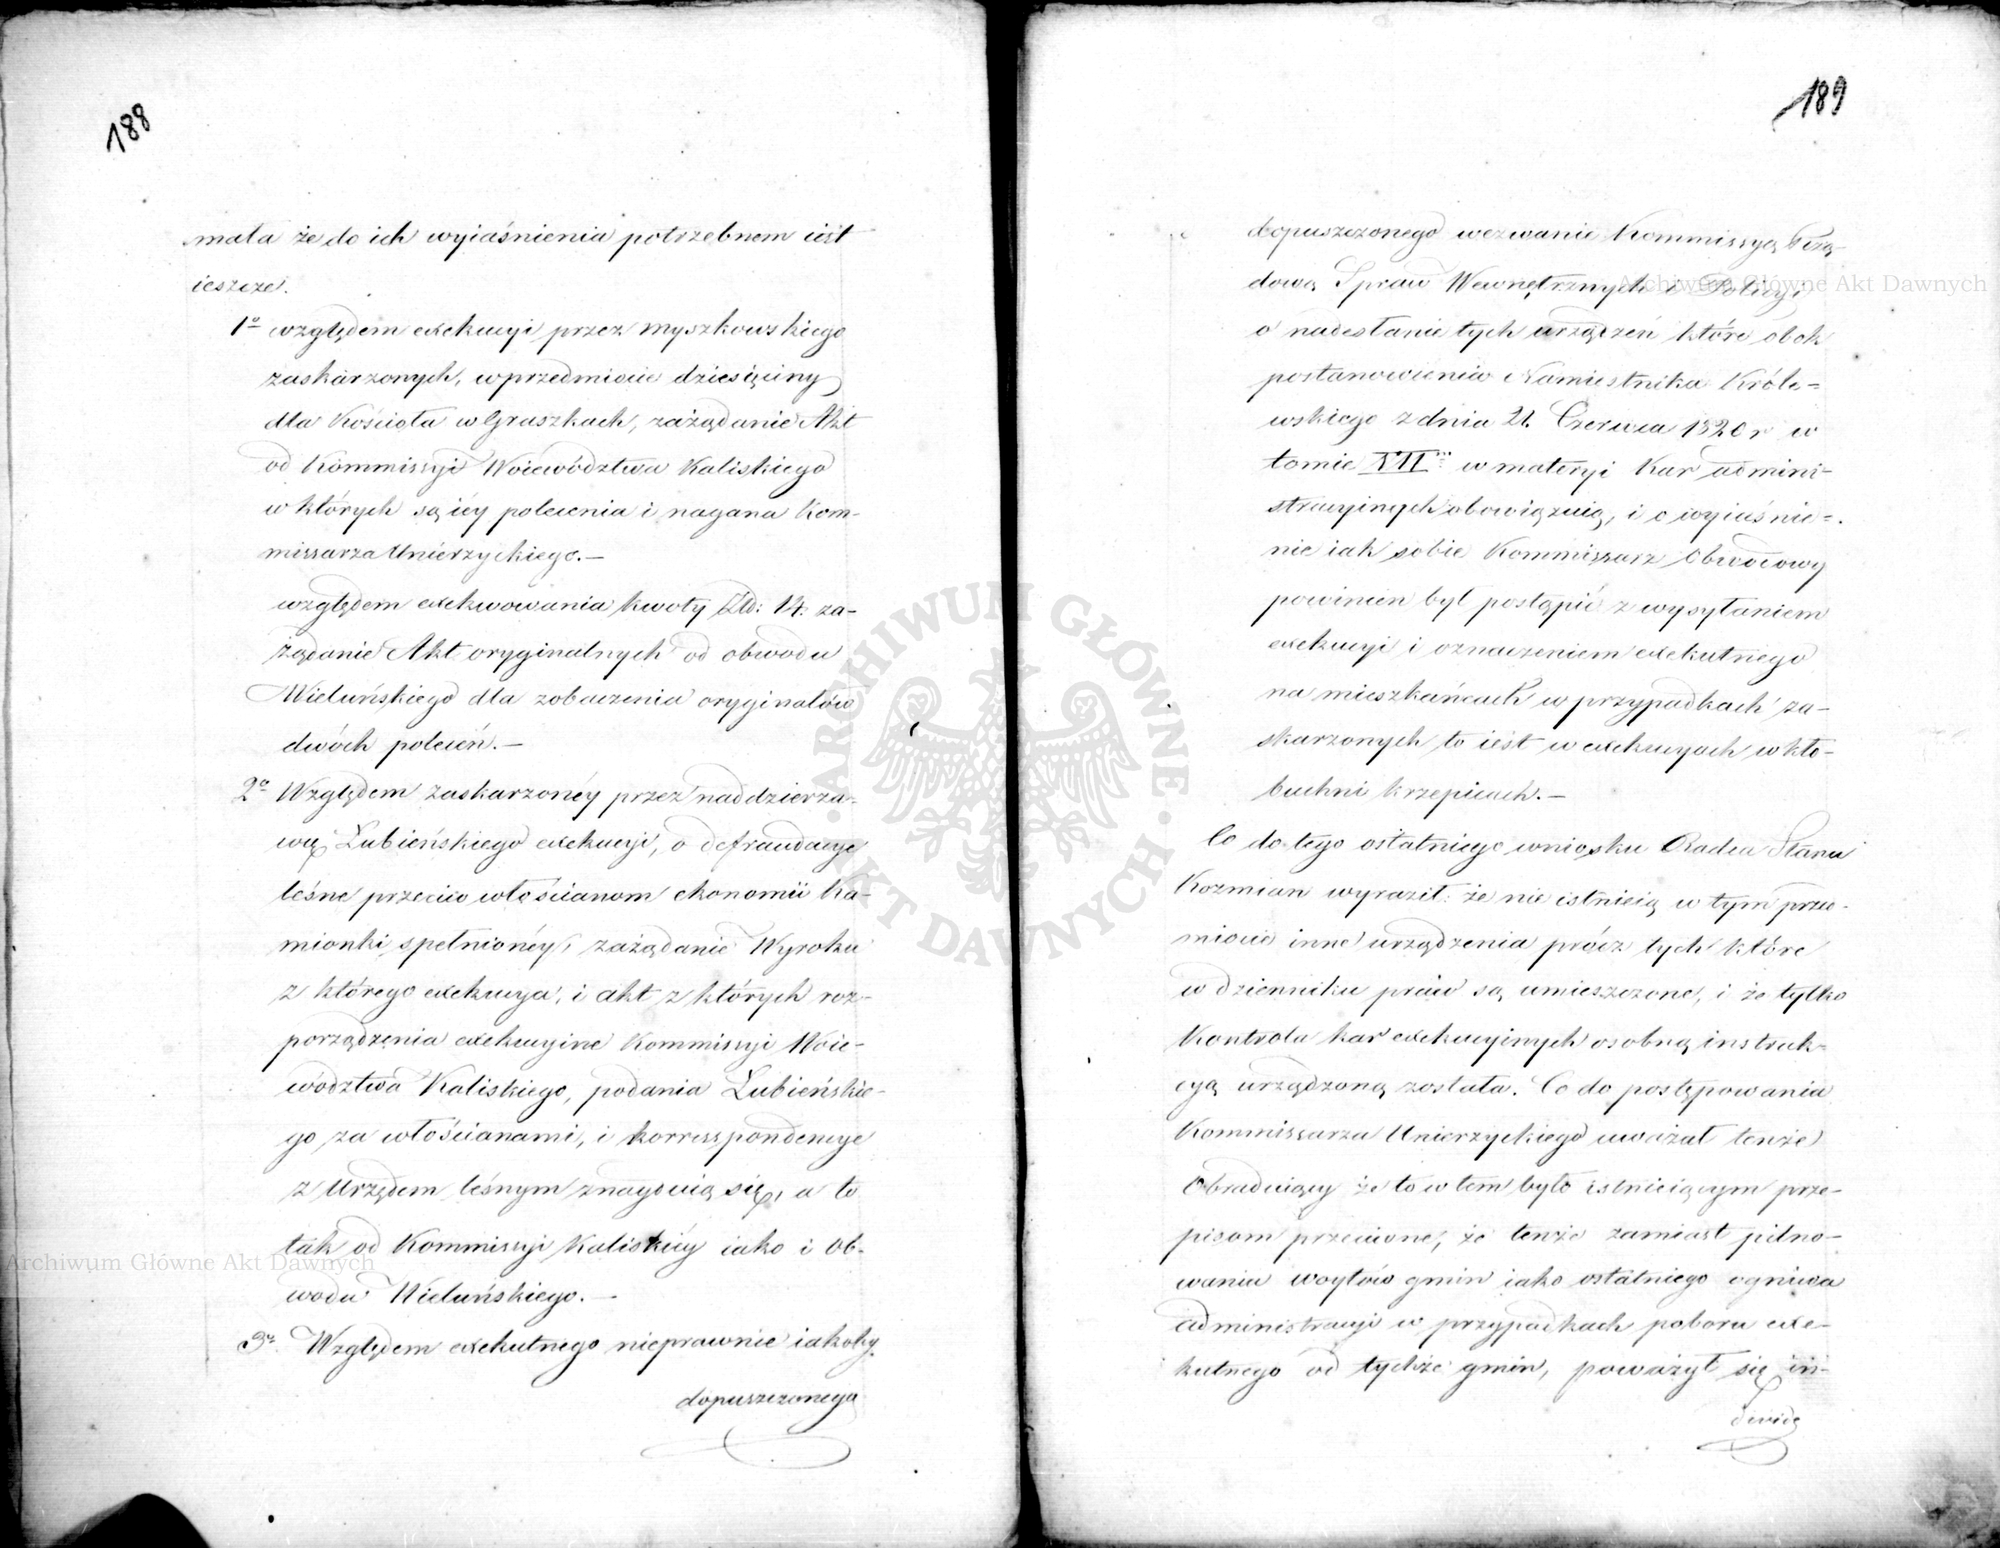 188
mała że do ich wyiaśnienia potrzebnem iest
ieszcze.
1o względem exekucyi przez Myszkowskiego
zaskarzonych, w przedmiocie dziesięciny
dla Kościoła w Graszkach, zażądanie Akt
od Kommissyi Woiewództwa Kaliskiego
w których są iéy polecenia i nagana Kom-
missarza Unierzyckiego.—
względem exekwowania kwoty Złp: 14. za-
żądanie Akt oryginalnych od obwodu
Wieluńskiego dla zobaczenia oryginałów
dwóch poleceń.—
2o Względem zaskarzonéy przez naddzierza-
wcę Łubieńskiego exekucyi, o defraudacye
leśne przeciw włościanom ekonomii Ka-
mionki spełnionéy, zażądanie Wyroku
z którego exekucya, i akt z których roz-
porządzenia exekucyine Kommissyi Woie-
wództwa Kaliskiego, podania Łubieńskie-
go za włościanami, i korrespondencye
z Urzędem leśnym znayduią się, a to
tak od Kommissyi Kaliskiéy iako i Ob-
wodu Wieluńskiego.—
3o Względem exekutnego nieprawnie iakoby
dopuszczonego
189
dopuszczonego wezwanie Kommissyą Rzą-
dową Spraw Wewnętrznych i Policyi
o nadesłanie tych urządzeń które obok
postanowienia Namiestnika Króle-
wskiego z dnia 21. Czerwca 1820 r w
tomie VII w materyi Kar admini-
stracyinych obowiązuią, i o wyiaśnie-
nie iak sobie Kommissarz Obwodowy
powinien był postąpić z wysyłaniem
exekucyi i oznaczeniem exekutnego
na mieszkańcach w przypadkach za-
skarzonych to iest w exekucyach w Kło-
bucku i Krzepicach.—
Co do tego ostatniego wniosku Radca Stanu
Kozmian wyraził: że nie istnieią w tym prze-
miocie inne urządzenia prócz tych które
w dzienniku praw są umieszczone, i że tylko
Kontrola kar exekucyinych osobną instruk-
cyą urządzoną została. Co do postępowania
Kommissarza Unierzyckiego uważał tenże
Obraduiący że to w tem było istnieiącym prze-
pisom przeciwne, że tenże zamiast pilno-
wania woytów gmin iako ostatniego ogniwa
administracyi w przypadkach poboru exe-
kutnego od tychże gmin, poważył się in-
dividu
Archiwum Główne Akt Dawnych
Archiwum Główne Akt Dawnych
· ARCHIWUM GŁÓWNE · AKT DAWNYCH